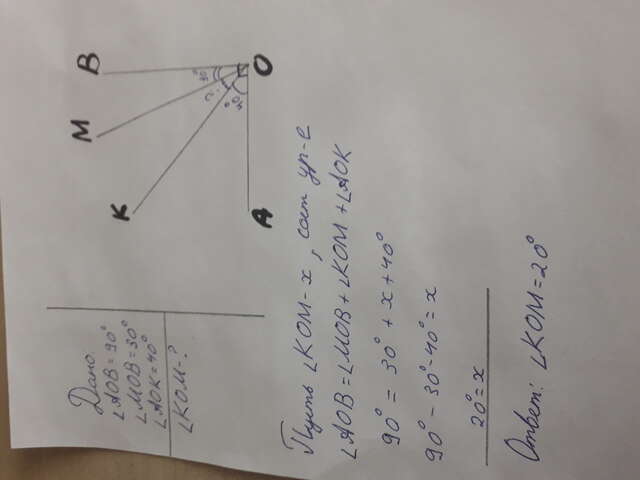 Дано
∠AOB=90°
∠MOB=30°
∠AOK=40°
∠KOM-?
B
M
K
A
O
30°
?
40°
Пусть ∠KOM-x, сост ур-е
∠AOB=∠MOB+∠KOM+∠AOK
90°=30°+x+40°
90°-30°-40°=x
20°=x
Ответ: ∠KOM=20°